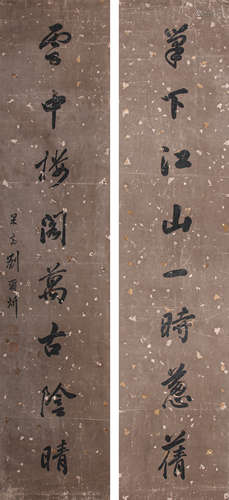 筆下江山一時蔥蒨
雲中樓閣萬古陰晴
劉爾炘